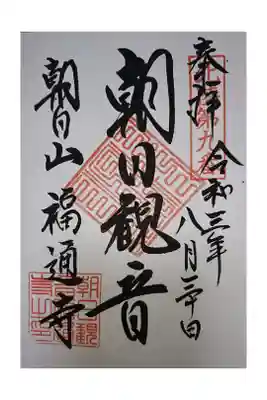 奉拝
令和三年
八月三十日
朝日観音
朝日山
福通寺